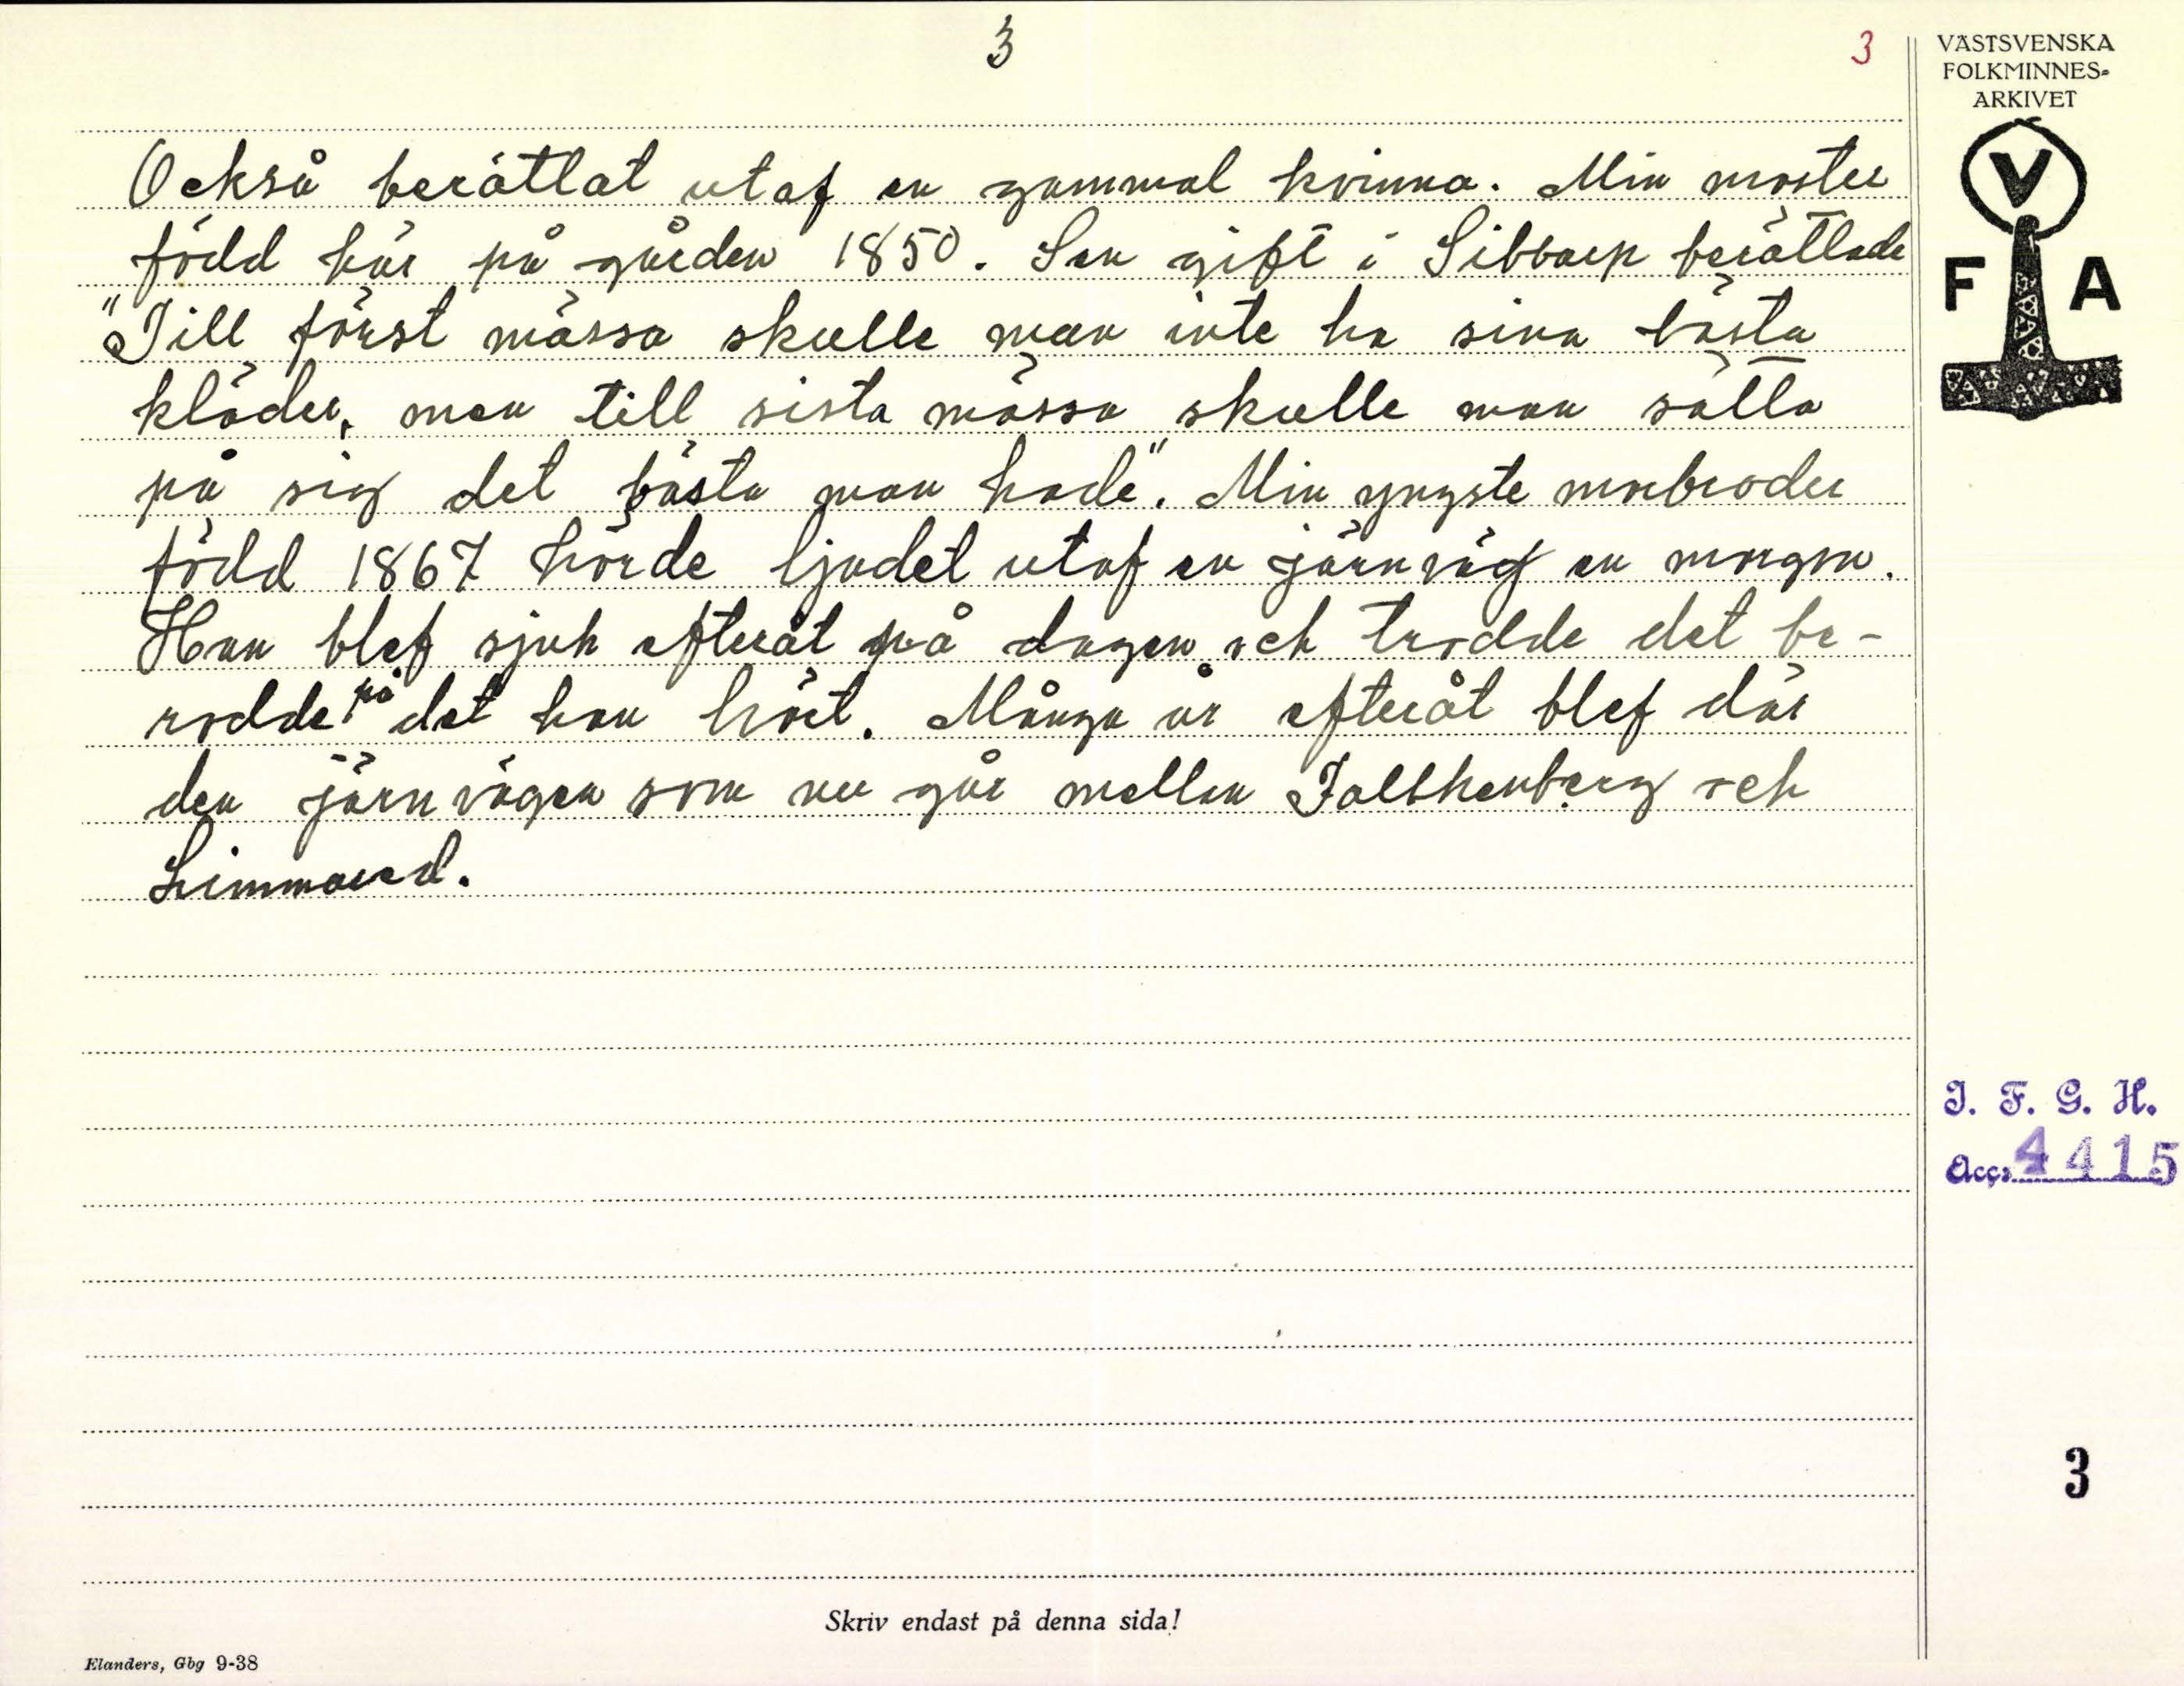 3
3
VÄSTSVENSKA
FOLKMINNES-
ARKIVET
V
F A
Också berättat utaf en gammal kvinna. Min moster
född här på gården 1850. Sen gift i Sibbarp berättade
"Till först mässa skulle man inte ha sina bästa
kläder, men till sista mässa skulle man sätta
på sig det bästa man hade". Min yngste morbroder
född 1867 hörde ljudet utaf en järnväg en morgon.
Han blef sjuk efteråt på dagen och trodde det be-
rodde på det han hört. Många år efteråt blef där
den järnvägen som nu går mellan Falkhenberg och
Limmared.
I. F. G. H.
Acc. 4415
3
Skriv endast på denna sida!
Elanders, Gbg 9-38